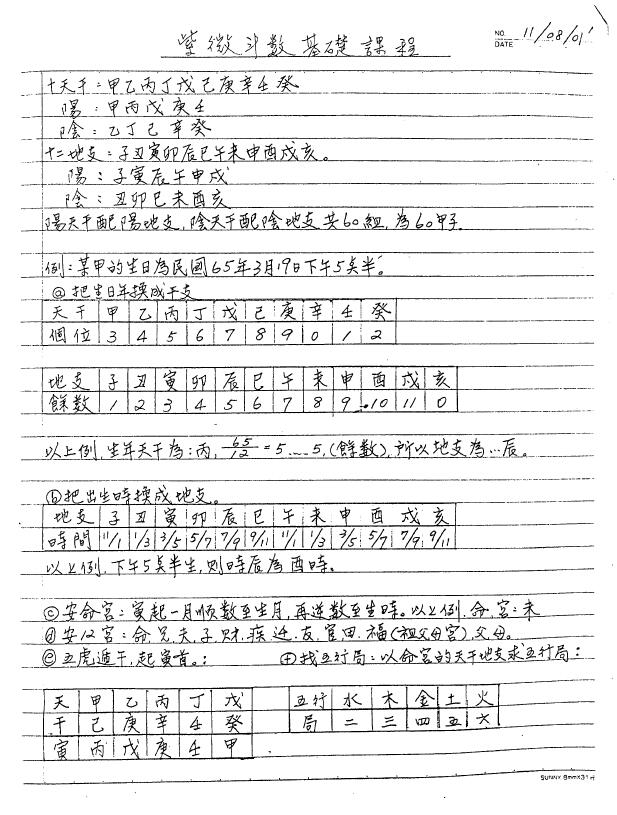 紫微斗数基礎課程
NO.
DATE 11/08/01'
十天干：甲乙丙丁戊己庚辛壬癸
陽：甲丙戊庚壬
陰：乙丁己辛癸
十二地支：子丑寅卯辰巳午未申酉戌亥。
陽：子寅辰午申戌
陰：丑卯巳未酉亥
陽天干配陽地支，陰天干配陰地支共60組，為60甲子。
例：某甲的生日為民國65年3月19日下午5点半。
ⓐ把生日年換成干支
天干 甲 乙 丙 丁 戊 己 庚 辛 壬 癸
個位 3 4 5 6 7 8 9 0 1 2
地支 子 丑 寅 卯 辰 巳 午 未 申 酉 戌 亥
餘數 1 2 3 4 5 6 7 8 9 10 11 0
以上例，生年天干為：丙，65/12=5……5，(餘數)，所以地支為…辰。
ⓑ把出生時換成地支。
地支 子 丑 寅 卯 辰 巳 午 未 申 酉 戌 亥
時間 11/1 1/3 3/5 5/7 7/9 9/11 11/1 1/3 3/5 5/7 7/9 9/11
以上例，下午5点半生，則時辰為酉時。
ⓒ安命宮：寅起一月順數至生月，再逆數至生時。以上例，命宮：未
ⓓ安12宮：命兄夫子財疾迁友官田福(祖父母宮)父母。
ⓔ五虎遁干，起寅首。： ⓕ找五行局：以命宮的天干地支求五行局：
天 甲 乙 丙 丁 戊 五行 水 木 金 土 火
干 己 庚 辛 壬 癸 局 二 三 四 五 六
寅 丙 戊 庚 壬 甲
SUNNY 8mm×31行